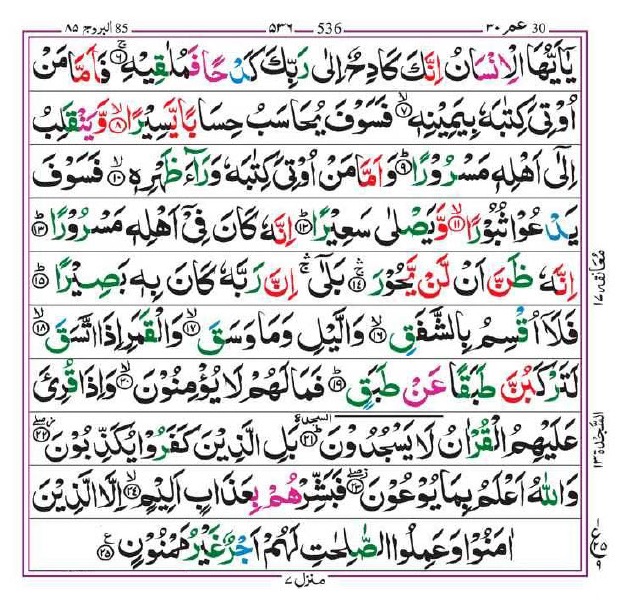 85 البروج ۸۵
536 ۵۳۶
30 عمر ۳۰
يٰۤاَيُّهَا الْاِنْسَانُ اِنَّكَ كَادِحٌ اِلٰى رَبِّكَ كَدْحًا فَمُلٰقِيْهِ ۚ‏﴿۶﴾ فَاَمَّا مَنْ
اُوْتِىَ كِتٰبَهٗ بِيَمِيْنِهٖۙ‏﴿۷﴾ فَسَوْفَ يُحَاسَبُ حِسَابًا يَّسِيْرًاۙ‏﴿۸﴾ وَّيَنْقَلِبُ
اِلٰٓى اَهْلِهٖ مَسْرُوْرًاؕ‏﴿۹﴾ وَاَمَّا مَنْ اُوْتِىَ كِتٰبَهٗ وَرَآءَ ظَهْرِهٖۙ‏﴿۱۰﴾ فَسَوْفَ
يَدْعُوْا ثُبُوْرًاۙ‏﴿۱۱﴾ وَّيَصْلٰى سَعِيْرًاؕ‏﴿۱۲﴾ اِنَّهٗ كَانَ فِىْۤ اَهْلِهٖ مَسْرُوْرًاؕ‏﴿۱۳﴾
اِنَّهٗ ظَنَّ اَنْ لَّنْ يَّحُوْرَ ۛۚ‏﴿۱۴﴾ بَلٰٓى ۛۚ اِنَّ رَبَّهٗ كَانَ بِهٖ بَصِيْرًاؕ‏﴿۱۵﴾
فَلَاۤ اُقْسِمُ بِالشَّفَقِۙ‏﴿۱۶﴾ وَالَّيْلِ وَمَا وَسَقَۙ‏﴿۱۷﴾ وَالْقَمَرِ اِذَا اتَّسَقَۙ‏﴿۱۸﴾
لَتَرْكَبُنَّ طَبَقًا عَنْ طَبَقٍؕ‏﴿۱۹﴾ فَمَا لَهُمْ لَا يُؤْمِنُوْنَۙ‏﴿۲۰﴾ وَاِذَا قُرِئَ
عَلَيْهِمُ الْقُرْاٰنُ لَا يَسْجُدُوْنَ ؕ السجدة ‏﴿۲۱﴾ بَلِ الَّذِيْنَ كَفَرُوْا يُكَذِّبُوْنَ ۖ‏﴿۲۲﴾
وَاللّٰهُ اَعْلَمُ بِمَا يُوْعُوْنَ ۖ‏﴿۲۳﴾ فَبَشِّرْهُمْ بِعَذَابٍ اَلِيْمٍۙ‏﴿۲۴﴾ اِلَّا الَّذِيْنَ
اٰمَنُوْا وَعَمِلُوا الصّٰلِحٰتِ لَهُمْ اَجْرٌ غَيْرُ مَمْنُوْنٍ ع‏﴿۲۵﴾
معانقه ۱۷
السّجدة ۱۳
ع ۲۵ ۹
منزل ۷